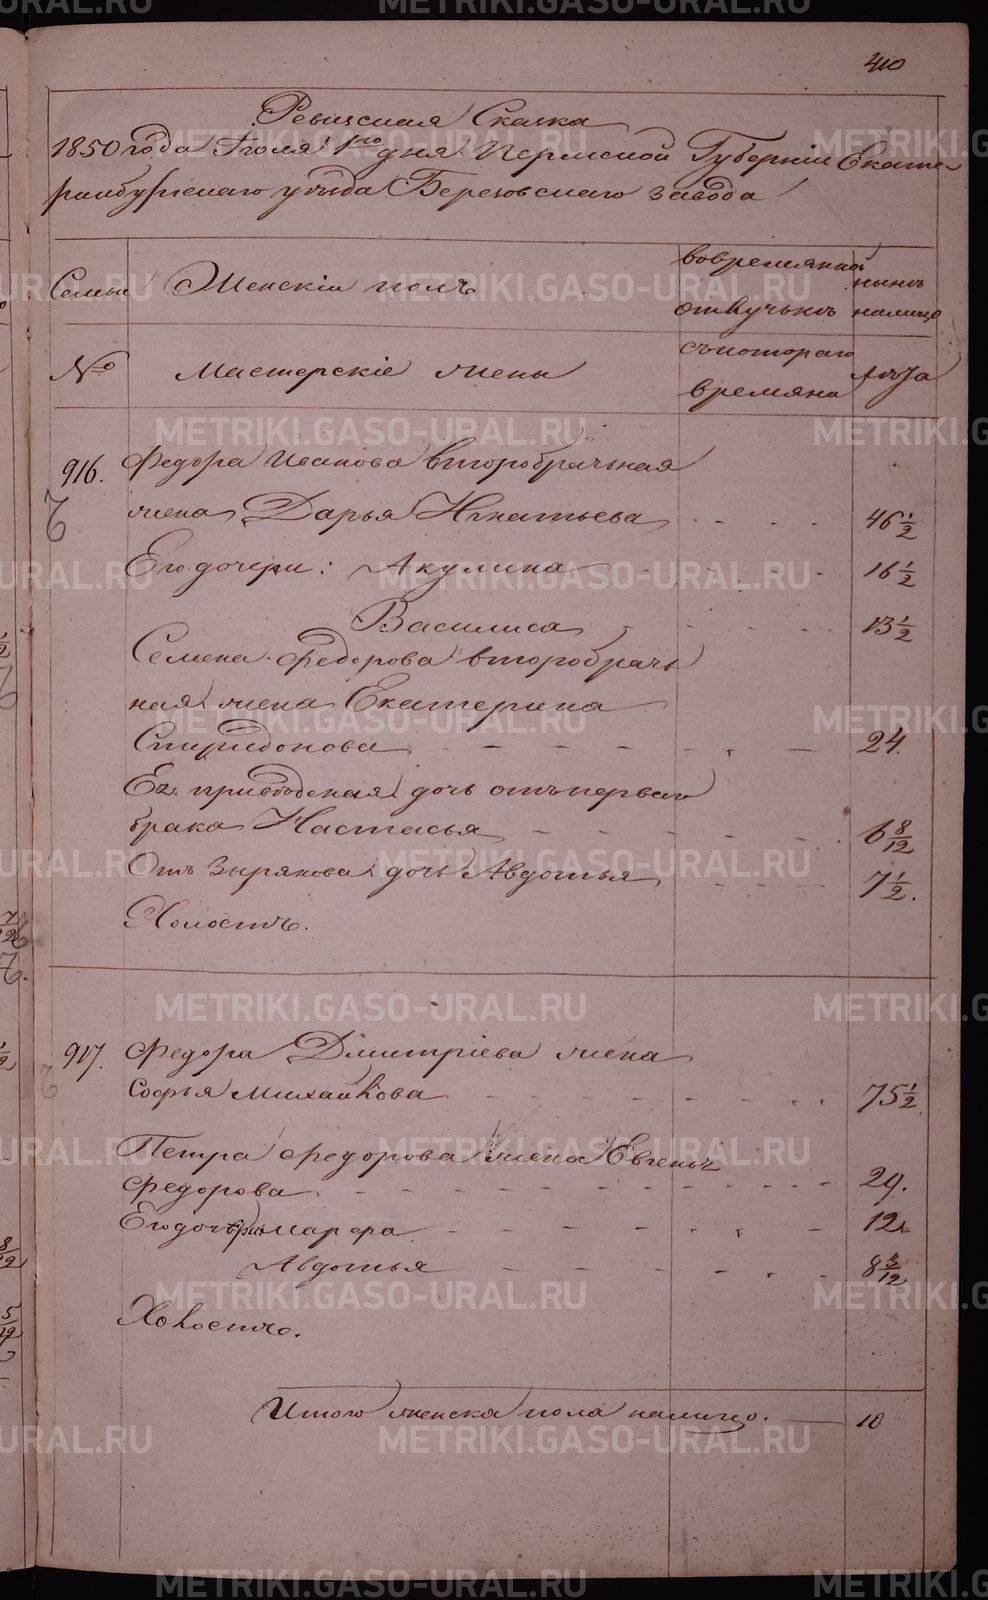 410
Ревизская Сказка
1850 года Iюля 1го дня Пермской Губернiи Екате-
ринбургскаго уезда Березовскаго завода
Семьи
Женскiй полъ
вовременной
отлучькъ
ныне
налицо
№
Мастерскiе жены
съкотораго
времяни
лѣта
916. Федора Иванова второбрачьная
жена Дарья Игнатьева 46 1/2
Его дочери: Акулина 16 1/2
Василиса 13 1/2
Семена Федорова второбрачь
ная жена Екатерина
Спиридонова 24.
Ея приводская дочь отъперваго
брака Настасья 6 8/12
Отъ Зырянова дочь Авдотья 7 1/2.
Холостъ.
917. Федора Дмитрiева жена
Софья Михайлова 75 1/2
Петра Федорова жена Евгенья
Федорова 29.
Его дочери Марфа 12.
Авдотья 8 3/12
Холостъ.
Итого женска пола налицо. 10
METRIKI.GASO-URAL.RU